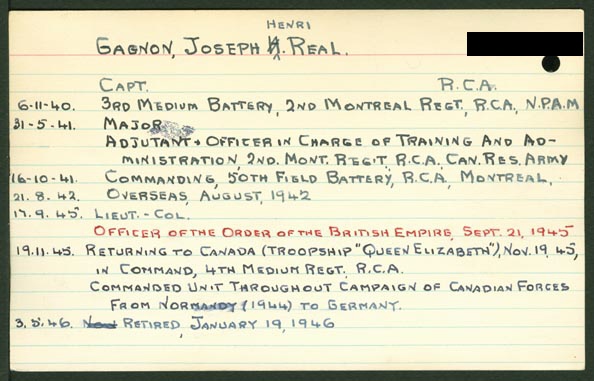 HENRI
GAGNON, JOSEPH H. REAL.
CAPT. R.C.A.
6-11-40. 3RD MEDIUM BATTERY, 2ND MONTREAL REGT., R.C.A., N.P.A.M
31-5-41. MAJOR
ADJUTANT + OFFICER IN CHARGE OF TRAINING AND AD-
MINISTRATION, 2ND. MONT. REGIT., R.C.A., CAN. RES. ARMY
16-10-41. COMMANDING, 50TH FIELD BATTERY, R.C.A., MONTREAL,
21.8.42. OVERSEAS, AUGUST, 1942
17.9.45. LIEUT.-COL.
OFFICER OF THE ORDER OF THE BRITISH EMPIRE, SEPT. 21, 1945
19.11.45. RETURNING TO CANADA (TROOPSHIP "QUEEN ELIZABETH"), NOV. 19, 45,
IN COMMAND, 4TH MEDIUM REGT., R.C.A.
COMMANDED UNIT THROUGHOUT CAMPAIGN OF CANADIAN FORCES
FROM NORMANDY (1944) TO GERMANY.
3.5.46. RETIRED, JANUARY 19, 1946